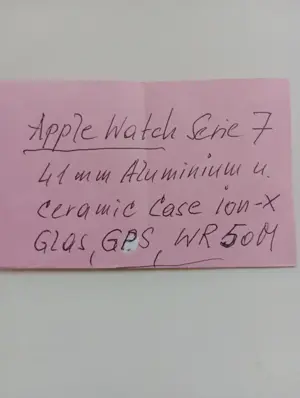 Apple Watch Serie 7
41 mm Aluminium u.
ceramic Case ion-X
Glas, GPS, WR 50M